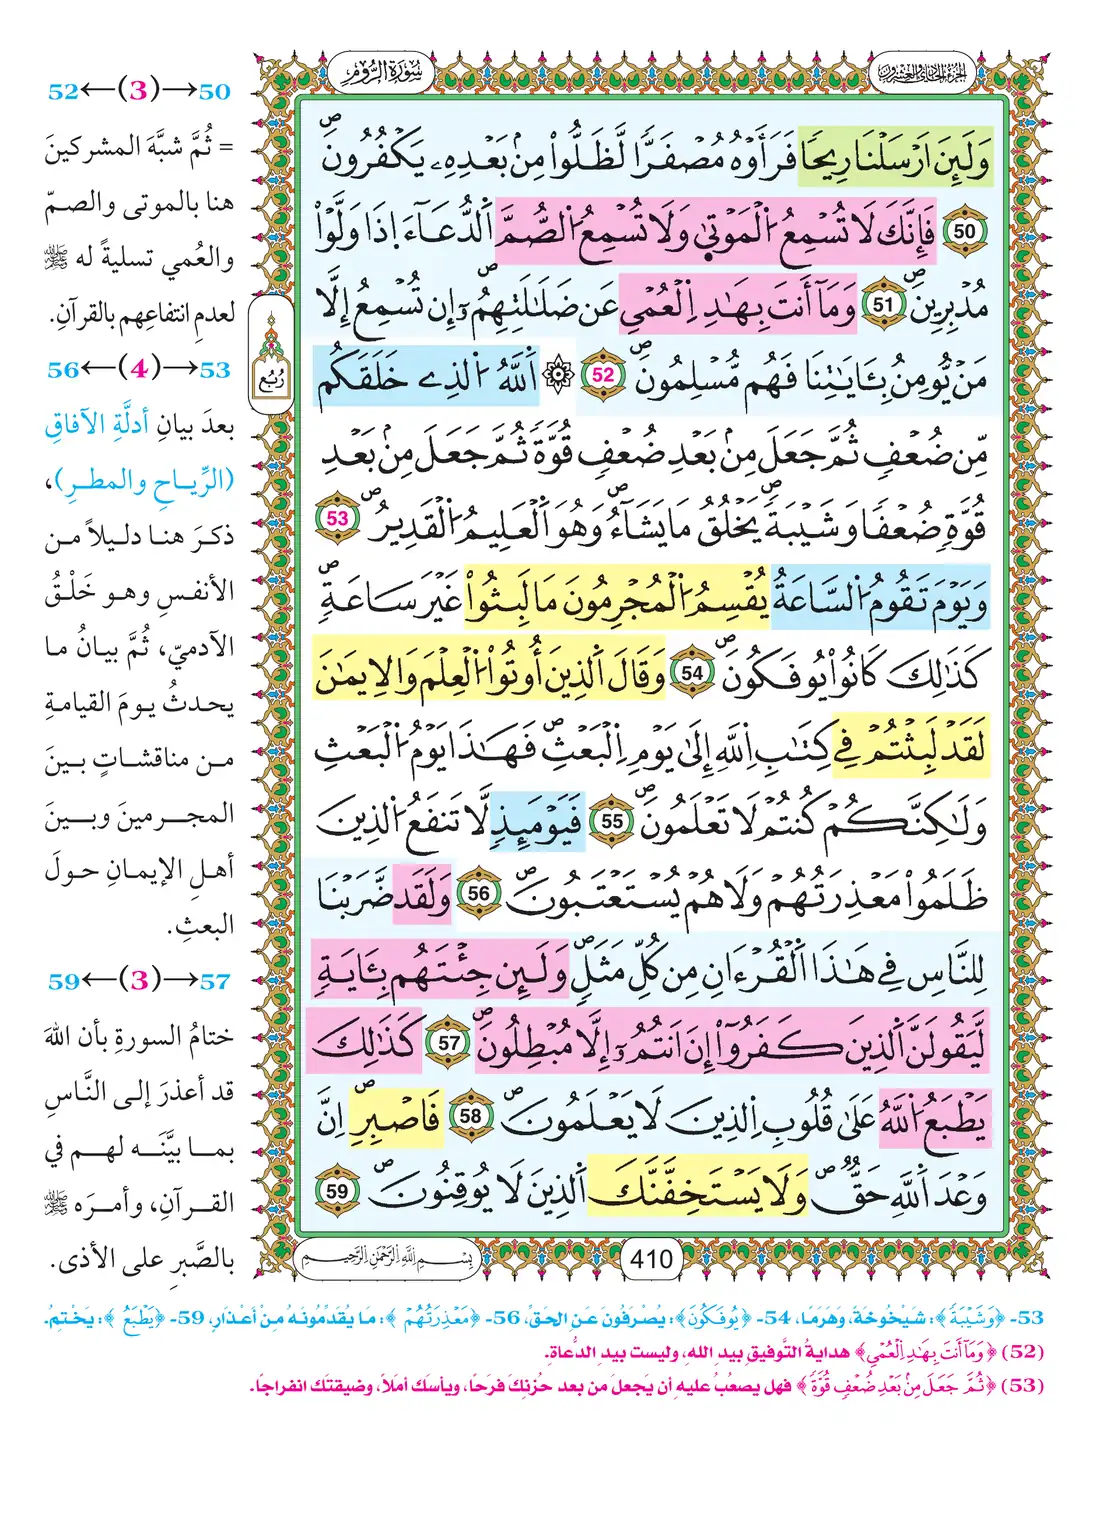 سُورَةُ الرُّومِ
الجزء الحادي والعشرون
وَلَئِنَ اَرْسَلْنَا رِيحًا فَرَأَوْهُ مُصْفَرًّا لَّظَلُّواْ مِنۢ بَعْدِهِۦ يَكْفُرُونَ
50 فَإِنَّكَ لَا تُسْمِعُ اُ۬لْمَوْتٜىٰ وَلَا تُسْمِعُ اُ۬لصُّمَّ اَ۬لدُّعَآءَ اِذَا وَلَّوْاْ
مُدْبِرِينَ 51 وَمَآ أَنتَ بِهَٰدِ اِ۬لْعُمْيِ عَن ضَلَٰلَتِهِمُۥٓ إِن تُسْمِعُ إِلَّا
مَنْ يُّومِنُ بِـَٔايَٰتِنَا فَهُم مُّسْلِمُونَ 52 ۞ اَ۬للَّهُ اُ۬لذِے خَلَقَكُم
مِّن ضُعْفٖ ثُمَّ جَعَلَ مِنۢ بَعْدِ ضُعْفٖ قُوَّةٗ ثُمَّ جَعَلَ مِنۢ بَعْدِ
قُوَّةٖ ضُعْفٗا وَشَيْبَةٗ يَخْلُقُ مَا يَشَآءُ وَهُوَ اَ۬لْعَلِيمُ اُ۬لْقَدِيرُ 53
وَيَوْمَ تَقُومُ اُ۬لسَّاعَةُ يُقْسِمُ اُ۬لْمُجْرِمُونَ مَا لَبِثُواْ غَيْرَ سَاعَةٖ
كَذَٰلِكَ كَانُواْ يُوفَكُونَ 54 وَقَالَ اَ۬لذِينَ أُوتُواْ اُ۬لْعِلْمَ وَالِايمَٰنَ
لَقَدْ لَبِثْتُمْ فِي كِتَٰبِ اِ۬للَّهِ إِلَىٰ يَوْمِ اِ۬لْبَعْثِ فَهَٰذَا يَوْمُ اُ۬لْبَعْثِ
وَلَٰكِنَّكُمْ كُنتُمْ لَا تَعْلَمُونَ 55 فَيَوْمَئِذٖ لَّا تَنفَعُ اُ۬لذِينَ
ظَلَمُواْ مَعْذِرَتُهُمْ وَلَا هُمْ يُسْتَعْتَبُونَ 56 وَلَقَد ضَّرَبْنَا
لِلنَّاسِ فِي هَٰذَا اَ۬لْقُرْءَانِ مِن كُلِّ مَثَلٖ وَلَئِن جِئْتَهُم بِـَٔايَةٖ
لَّيَقُولَنَّ اَ۬لذِينَ كَفَرُوٓاْ إِنَ اَنتُمُۥٓ إِلَّا مُبْطِلُونَ 57 كَذَٰلِكَ
يَطْبَعُ اُ۬للَّهُ عَلَىٰ قُلُوبِ اِ۬لذِينَ لَا يَعْلَمُونَ 58 فَاصْبِرِ اِنَّ
وَعْدَ اَ۬للَّهِ حَقّٞ وَلَا يَسْتَخِفَّنَّكَ اَ۬لذِينَ لَا يُوقِنُونَ 59
رُبُع
410
بِسْمِ اللَّهِ الرَّحْمَٰنِ الرَّحِيمِ
52←(3)→50
= ثُمَّ شبَّهَ المشركينَ
هنا بالموتى والصمّ
والعُمي تسليةً له ﷺ
لعدمِ انتفاعِهم بالقرآنِ.
56←(4)→53
بعدَ بيانِ أدلَّةِ الآفاقِ
(الرِّياحِ والمطرِ)،
ذكرَ هنا دليلاً من
الأنفسِ وهو خَلْقُ
الآدميّ، ثُمَّ بيانُ ما
يحدثُ يومَ القيامةِ
من مناقشاتٍ بينَ
المجرمينَ وبينَ
أهلِ الإيمانِ حولَ
البعثِ.
59←(3)→57
ختامُ السورةِ بأن اللهَ
قد أعذرَ إلى النَّاسِ
بما بيَّنَه لهم في
القرآنِ، وأمرَه ﷺ
بالصَّبرِ على الأذى.
53- ﴿وَشَيْبَةٗ﴾: شَيْخُوخَةً، وَهَرَمًا، 54- ﴿يُوفَكُونَ﴾: يُصْرَفُونَ عَنِ الحَقِّ، 56- ﴿مَعْذِرَتُهُمْ﴾: مَا يُقَدِّمُونَهُ مِنْ أَعْذَارٍ، 59- ﴿يَطْبَعُ﴾: يَخْتِمُ.
(52) ﴿وَمَآ أَنتَ بِهَٰدِ اِ۬لْعُمْيِ﴾ هدايةُ التَّوفيقِ بيدِ اللهِ، وليست بيدِ الدُّعاةِ.
(53) ﴿ثُمَّ جَعَلَ مِنۢ بَعْدِ ضُعْفٖ قُوَّةٗ﴾ فهل يصعُبُ عليهِ أن يَجعلَ من بعد حُزنِكَ فرَحًا، ويأسِكَ أملاً، وضيقتَك انفراجًا.